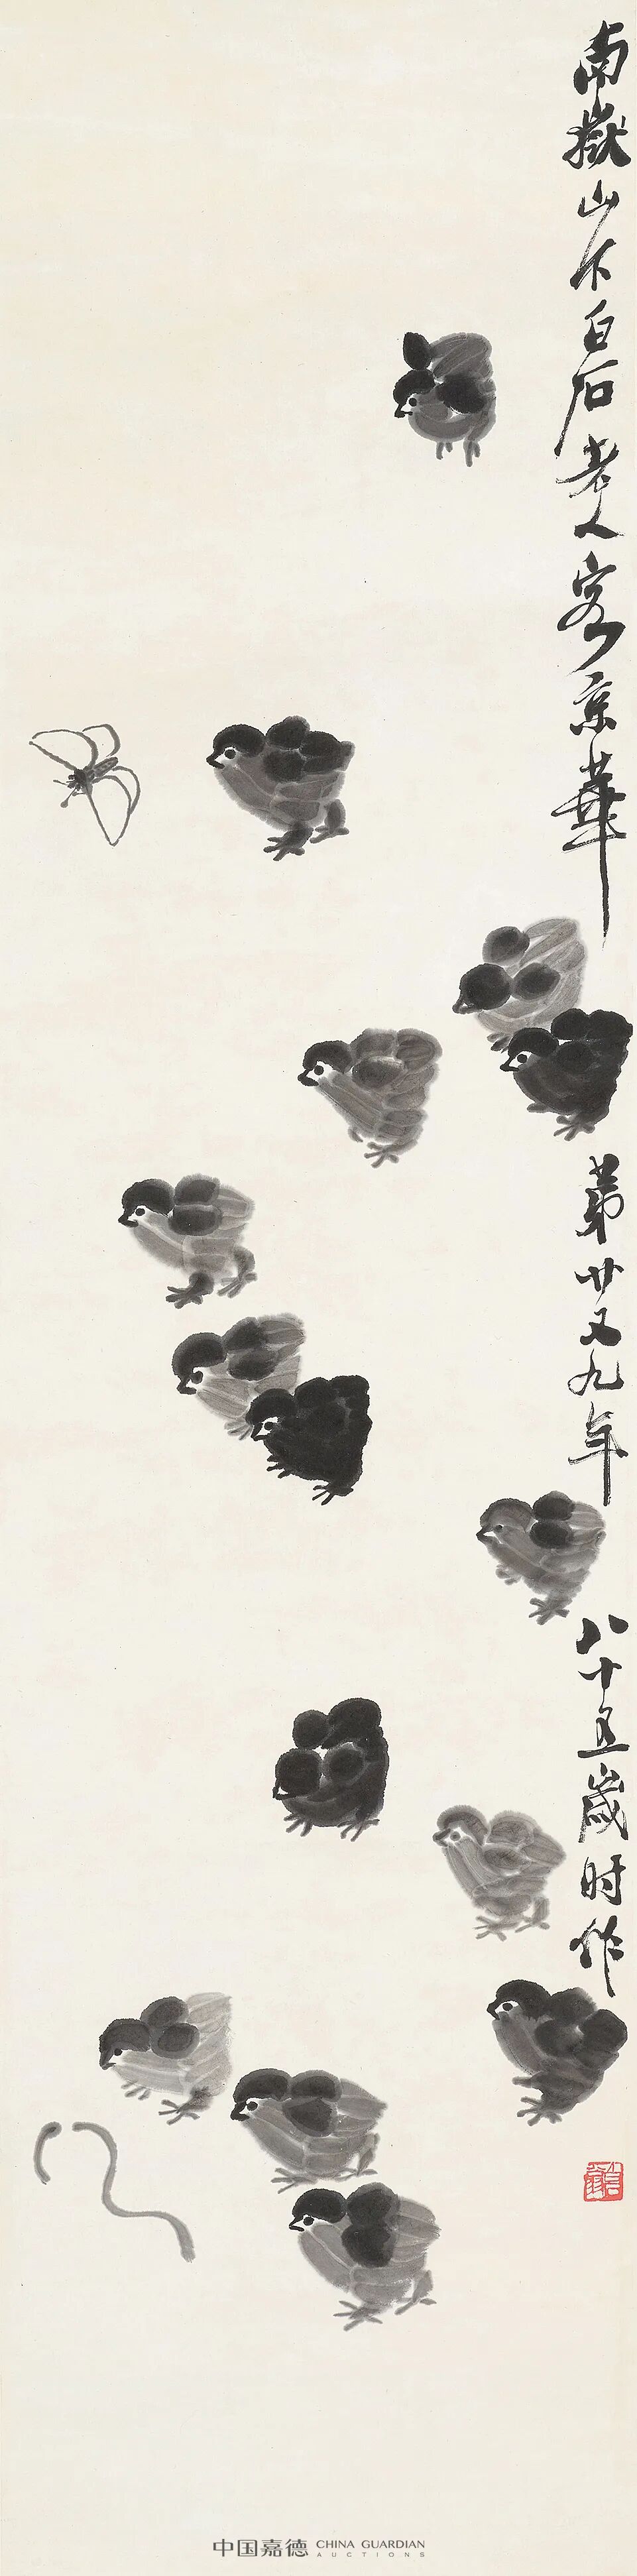 南嶽山下白石老人客京華
第廿又九年
八十五歲时作
中国嘉德 CHINA GUARDIAN
AUCTIONS